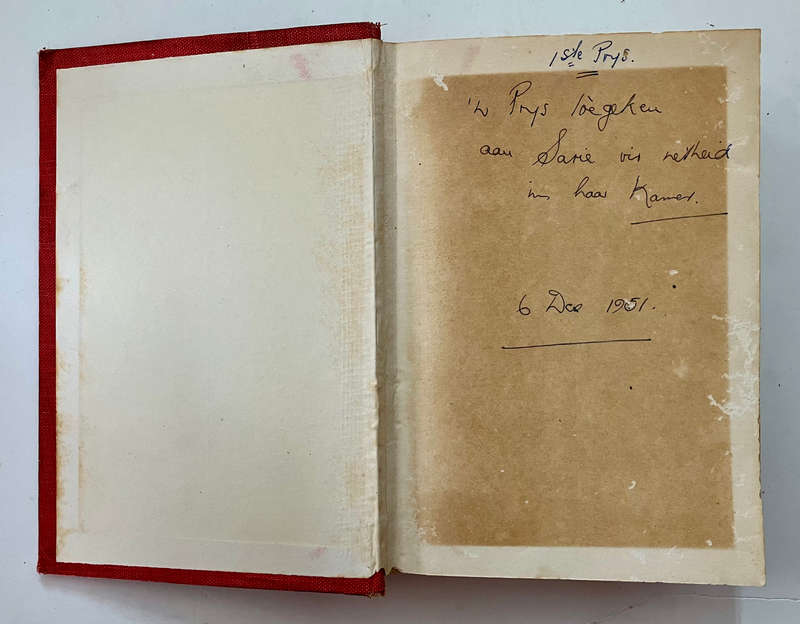 1ste Prys.
'n Prys Toegeken
aan Sarie vir netheid
in haar Kamer.
6 Des 1951.